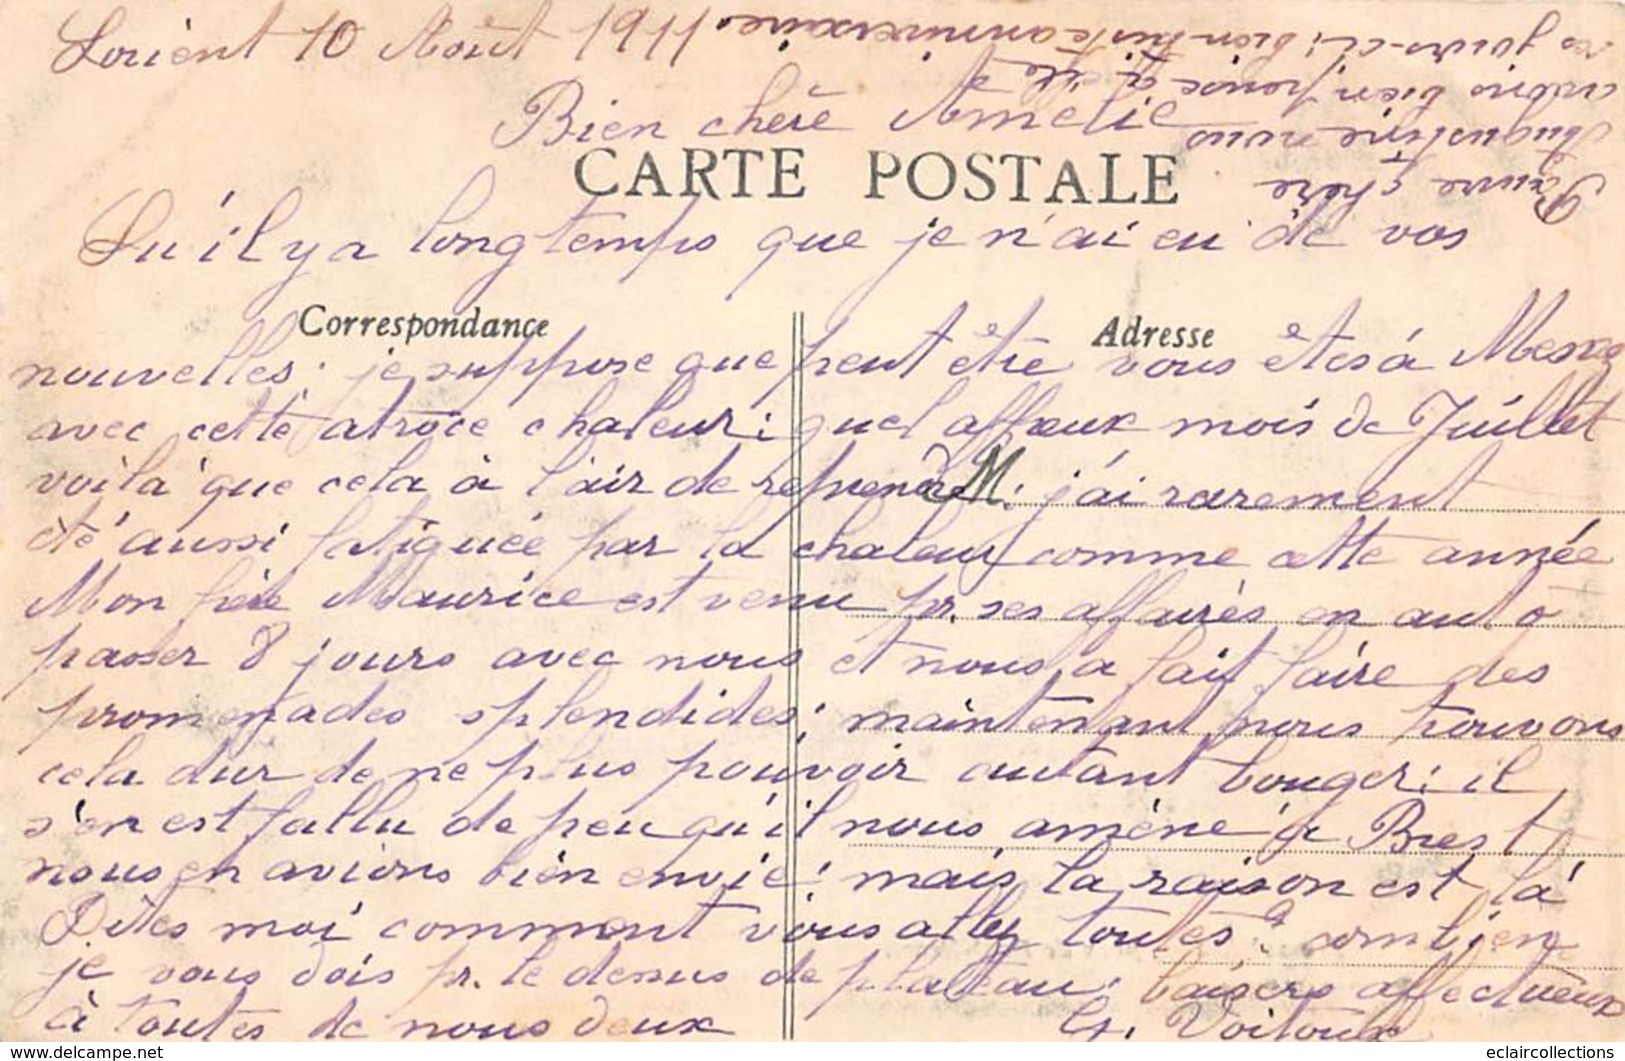 Lorient 10 Août 1911
Bien chère Amélie
CARTE POSTALE
Qu'il y a longtemps que je n'ai eu de vos
Correspondance
Adresse
nouvelles; je suppose que peut être vous êtes à
avec cette atroce chaleur; quel affreux mois de Juillet
voilà que cela à l'air de reprendre M. j'ai rarement
été aussi fatiguée par la chaleur comme cette année
Mon frère Maurice est venu pr. ses affaires en auto
passer 8 jours avec nous et nous a fait faire des
promenades splendides; maintenant nous trouvons
cela dur de ne plus pouvoir autant bouger; il
s'en est fallu de peu qu'il nous amène à Brest
nous en avions bien envie; mais la raison est là
Dites moi comment vous allez toutes? combien
je vous dois pr. le dessus de plateau; baisers affectueux
à toutes de nous deux
Pauvre chère
Augustine nous
avons bien pensé à elle
ces jours-ci; bien triste anniversaire.
eclaircollections
www.delcampe.net